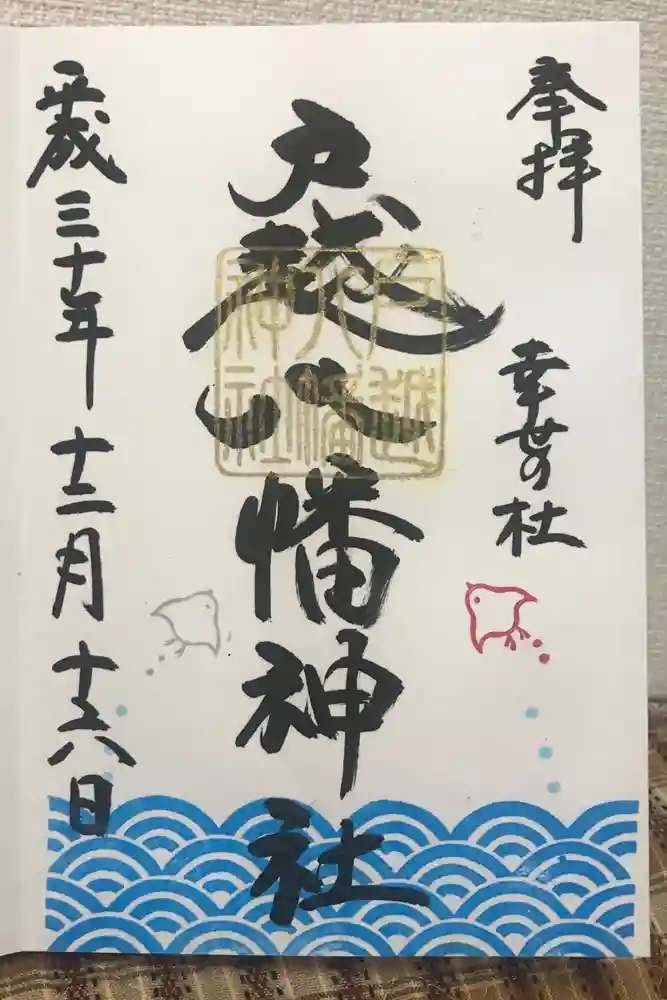 奉拝
幸せの杜
戸越八幡神社
戸越
八幡
神社
平成三十年十二月十六日